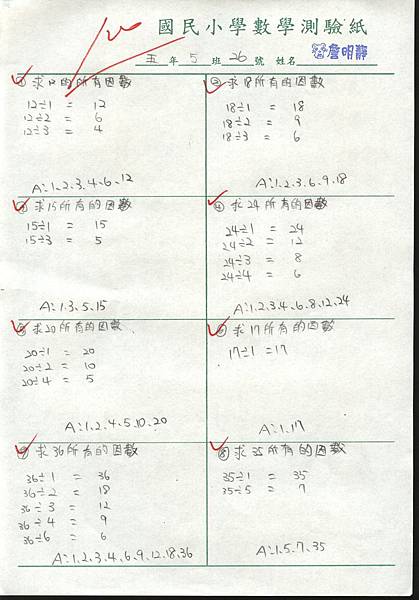 國民小學數學測驗紙
五 年 5 班 26 號 姓名 詹明靜
① 求12的所有因數
12÷1 = 12
12÷2 = 6
12÷3 = 4
A:1.2.3.4.6.12
② 求18所有的因數
18÷1 = 18
18÷2 = 9
18÷3 = 6
A:1.2.3.6.9.18
③ 求15所有的因數
15÷1 = 15
15÷3 = 5
A:1.3.5.15
④ 求24所有的因數
24÷1 = 24
24÷2 = 12
24÷3 = 8
24÷4 = 6
A:1.2.3.4.6.8.12.24
⑤ 求20所有的因數
20÷1 = 20
20÷2 = 10
20÷4 = 5
A:1.2.4.5.10.20
⑥ 求17所有的因數
17÷1 =17
A:1.17
⑦ 求36所有的因數
36÷1 = 36
36÷2 = 18
36÷3 = 12
36÷4 = 9
36÷6 = 6
A:1.2.3.4.6.9.12.18.36
⑧ 求35所有的因數
35÷1 = 35
35÷5 = 7
A:1.5.7.35